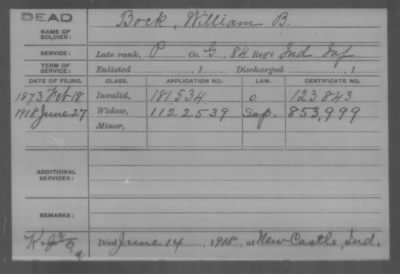 DEAD
NAME OF SOLDIER: Bock, William B.
SERVICE: Late rank, P Co. G, 84 Reg't Ind Inf
TERM OF SERVICE: Enlisted , 1 Discharged , 1
DATE OF FILING. CLASS. APPLICATION NO. LAW. CERTIFICATE NO.
1873 Feb 18 Invalid, 181534 o 123843
1918 June 27 Widow, 1122539 Sep. 853,999
Minor,
ADDITIONAL SERVICES:
REMARKS:
Died June 14 1918, at New Castle, Ind.